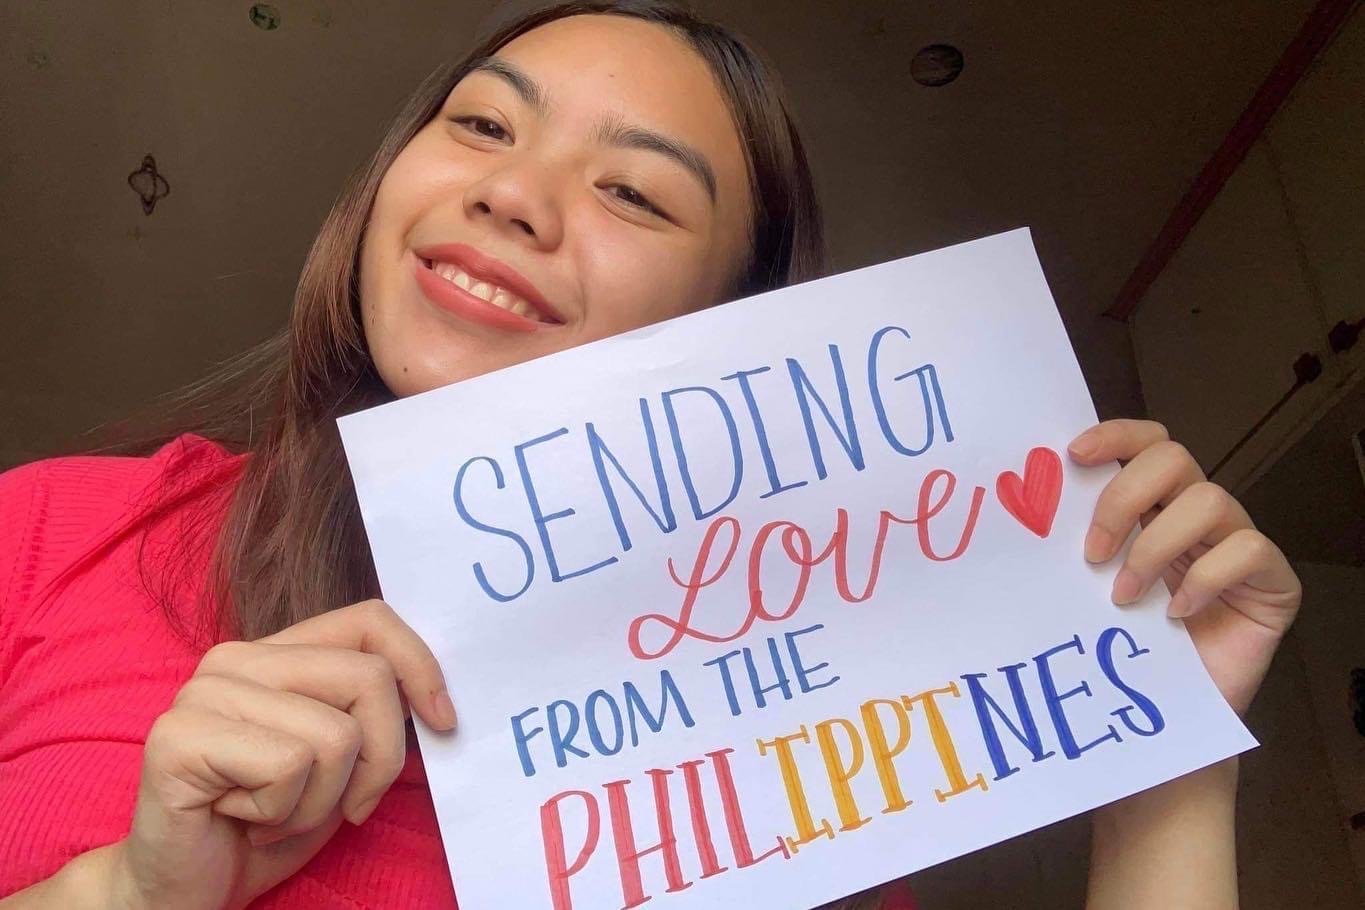 SENDING
Love ♥
FROM THE
PHILIPPINES